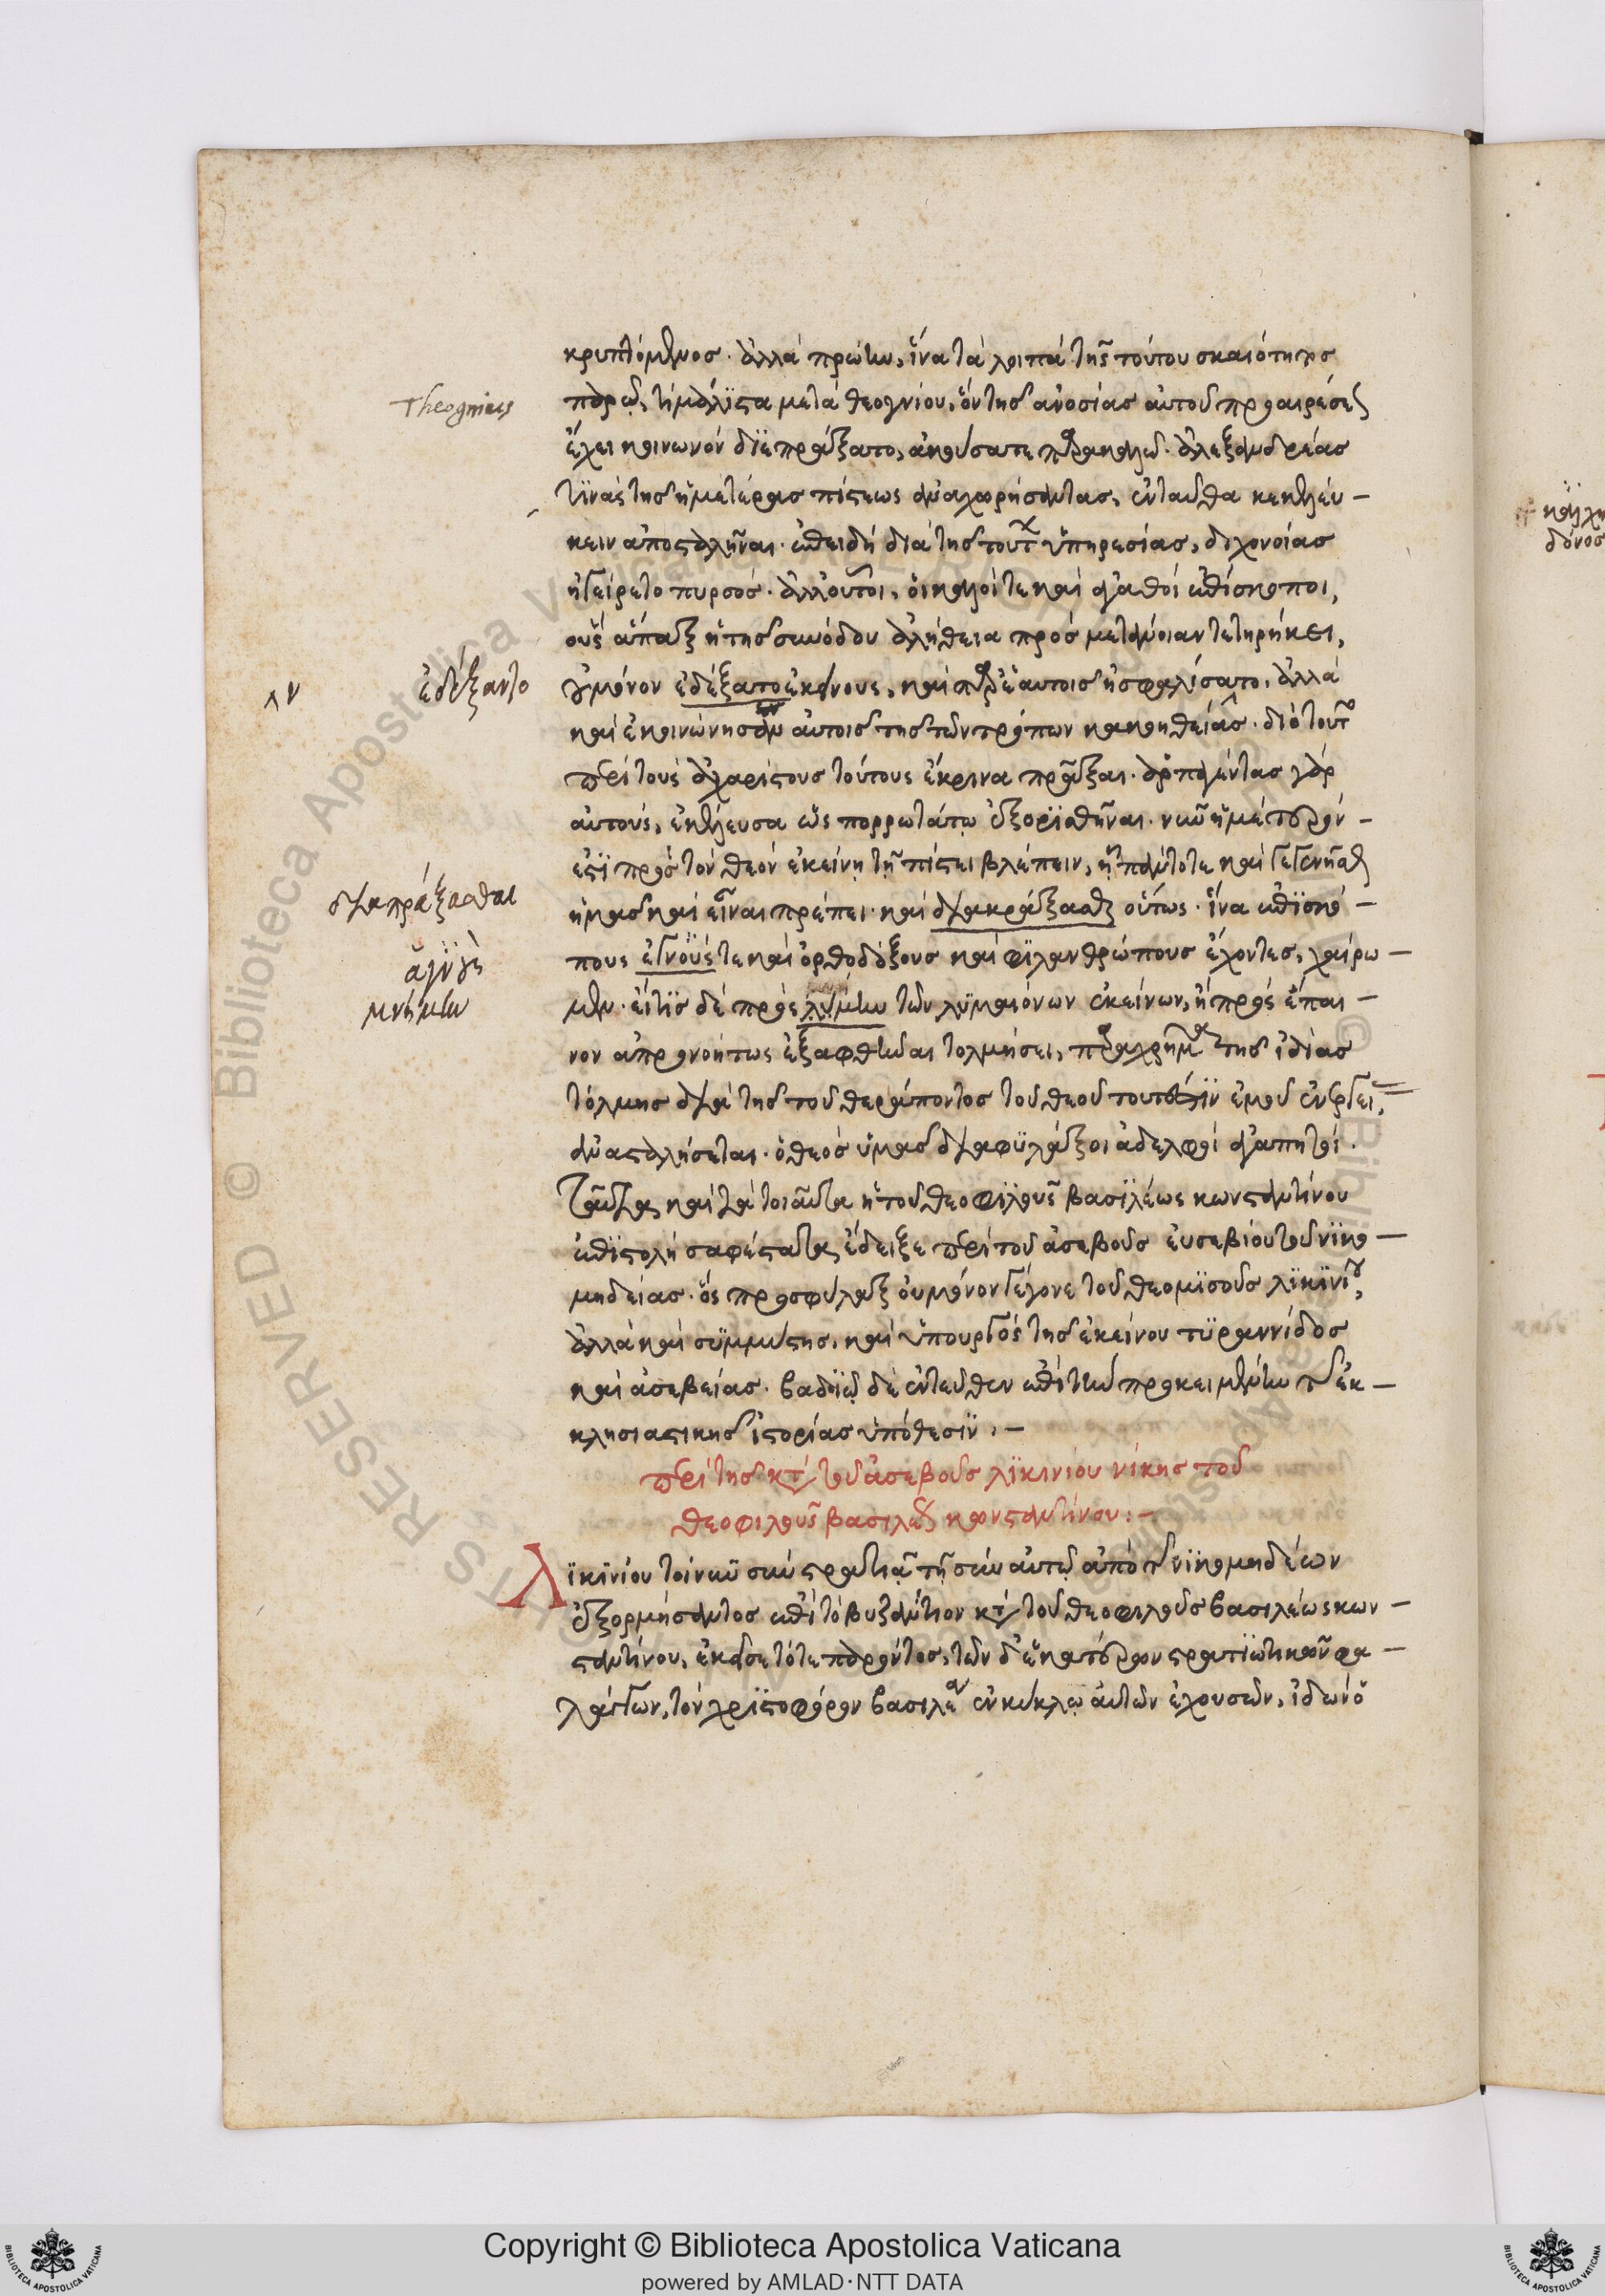 κρυπτόμενος. ἀλλὰ πρώην, ἵνα τὰ λοιπὰ τῆς τούτου σκαιότητος
Theognius
παρῶ, τί μάλιστα μετὰ θεογνίου, ὃν τῆς ἀνοσίας αὐτοῦ προαιρέσεως
ἔχει κοινωνὸν διεπράξατο, ἀκούσατε παρακαλῶ. ἀλεξανδρέας
τινὰς τῆς ἡμετέρας πίστεως ἀναχωρήσαντας, ἐνταῦθα κεκελεύ-
κειν ἀποσταλῆναι. ἐπειδὴ διὰ τῆς τούτων ὑπηρεσίας, διχονοίας
ἠγείρετο πυρσός. ἀλλ' οὗτοι, οἱ καλοί τε καὶ ἀγαθοὶ ἐπίσκοποι,
οὓς ἅπαξ ἡ τῆς συνόδου ἀλήθεια πρὸς μετάνοιαν τετηρήκει,
ἐδέξαντο
οὐ μόνον ἐδέξατο ἐκείνους, καὶ παρ' ἑαυτοῖς ἠσφαλίσατο, ἀλλὰ
καὶ ἐκοινώνησαν αὐτοῖς τῆς τῶν τρόπων κακοηθείας. διὸ τοῦτο
περὶ τοὺς ἀχαρίστους τούτους ἔκρινα πρᾶξαι. ἁρπαγέντας γὰρ
αὐτούς, ἐκέλευσα ὡς πορρωτάτω ἐξορισθῆναι. νῦν ἡμέτερόν-
ἐστι πρὸς τὸν θεὸν ἐκείνῃ τῇ πίστει βλέπειν, ᾗ πάντοτε καὶ γεγενῆσθαι
διαπράξασθαι
ἡμᾶς καὶ εἶναι πρέπει. καὶ διακράξασθαι οὕτως. ἵνα ἐπισκό-
ἁγνούς
πους ἐγνούς τε καὶ ὀρθοδόξους καὶ φιλανθρώπους ἔχοντες, χαίρω-
μνήμην
μεν. εἴ τις δὲ πρὸς λύμην τῶν λυμαιόνων ἐκείνων, ἢ πρὸς ἔπαι-
νον ἀπρονοήτως ἐξαφθῆναι τολμήσει, παραχρῆμα τῆς ἰδίας
τόλμης διὰ τῆς τοῦ θεράποντος τοῦ θεοῦ τουτέστιν ἐμοῦ ἐνεργείας
ἀνασταλήσεται. ὁ θεὸς ὑμᾶς διαφυλάξοι ἀδελφοὶ ἀγαπητοί.
Ταῦτα καὶ τὰ τοιαῦτα ἡ τοῦ θεοφιλοῦς βασιλέως κωνσταντίνου
ἐπιστολὴ σαφέστατα ἔδειξε περὶ τοῦ ἀσεβοῦς εὐσεβίου τοῦ νικο-
μηδείας. ὃς προσφύλαξ οὐ μόνον γέγονε τοῦ θεομισοῦς λικινίου,
ἀλλὰ καὶ συμμύστης, καὶ ὑπουργὸς τῆς ἐκείνου τυραννίδος
καὶ ἀσεβείας. βαδιῶ δὲ ἐντεῦθεν ἐπὶ τὴν προκειμένην τῆς ἐκ-
κλησιαστικῆς ἱστορίας ὑπόθεσιν.-
περὶ τῆς κατὰ τοῦ ἀσεβοῦς λικινίου νίκης τοῦ
θεοφιλοῦς βασιλέως κωνσταντίνου:-
Λικινίου τοίνυν σὺν στρατιᾷ τῇ σὺν αὐτῷ ἀπὸ τῆς νικομηδέων
ἐξορμήσαντος ἐπὶ τὸ βυζάντιον κατὰ τοῦ θεοφιλοῦς βασιλέως κων-
σταντίνου, ἐκεῖσε τότε παρόντος, τῶν δ' ἑκατέρων στρατιωτικῶν φα-
λάγγων, τὸν χριστοφόρον βασιλέα ἐν κύκλῳ αὐτῶν ἐχουσῶν, ἰδὼν ὁ